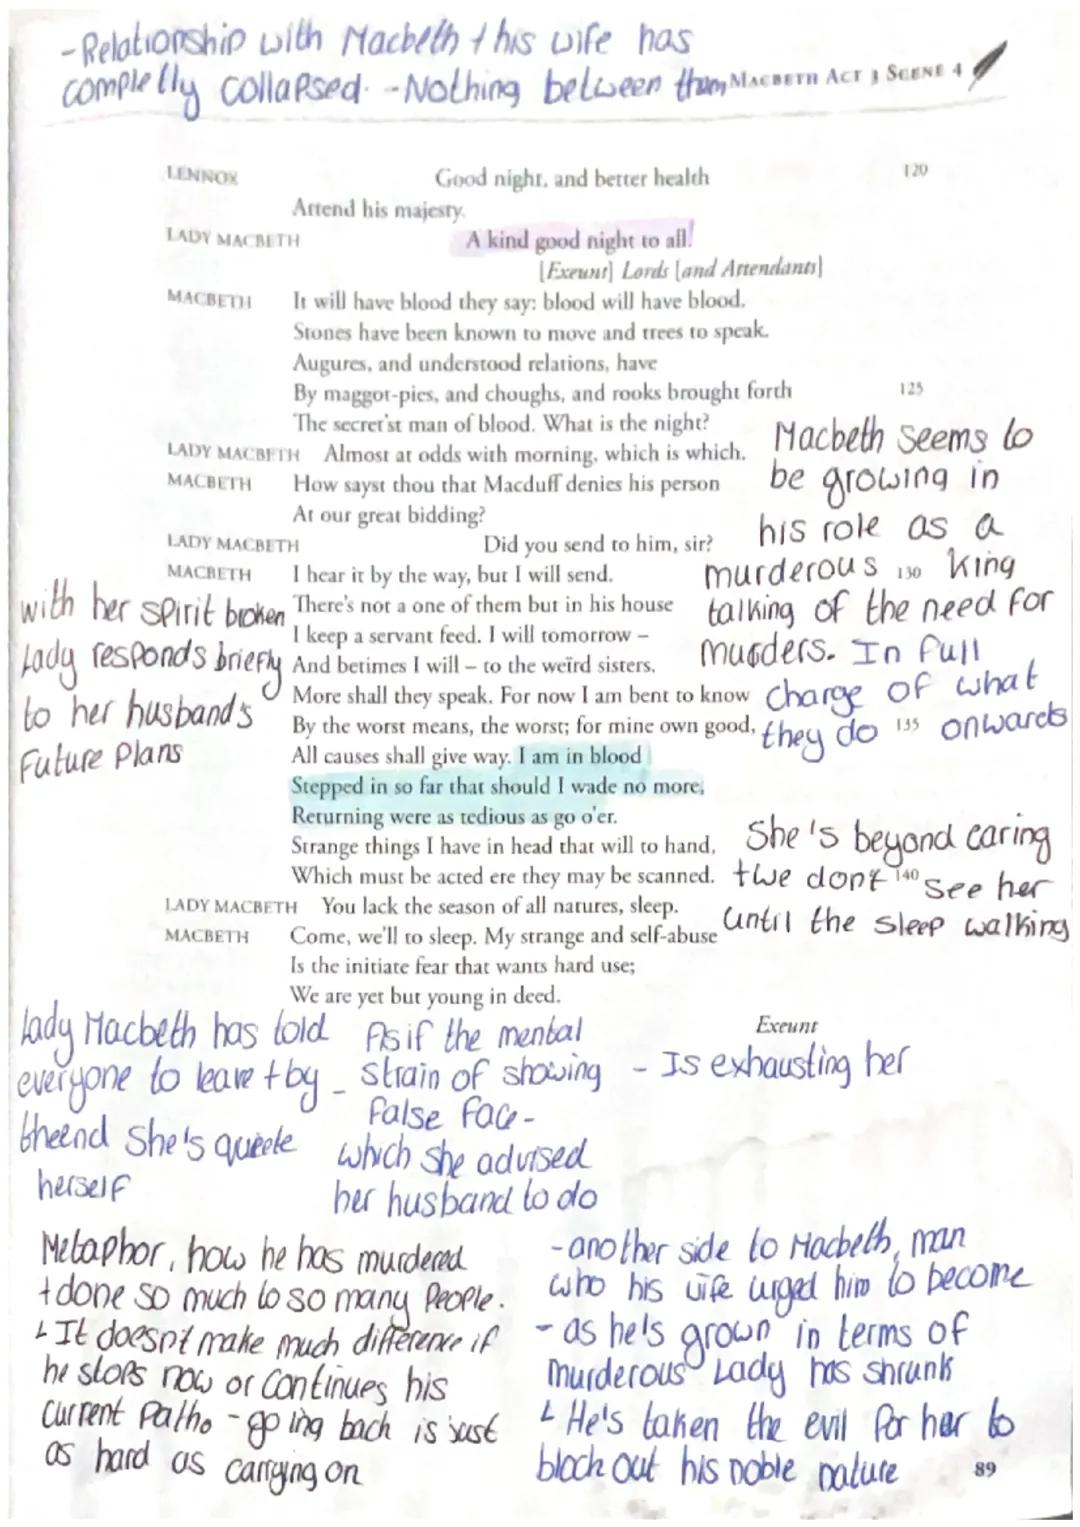 -Relationship with Macbeth + his wife has
completly collapsed. -Nothing between them
MACBETH ACT 3 SCENE 4
LENNOX Good night, and better health 120
Attend his majesty.
LADY MACBETH A kind good night to all!
[Exeunt] Lords [and Attendants]
MACBETH It will have blood they say: blood will have blood.
Stones have been known to move and trees to speak.
Augures, and understood relations, have
By maggot-pies, and choughs, and rooks brought forth 125
The secret'st man of blood. What is the night?
LADY MACBETH Almost at odds with morning, which is which.
MACBETH How sayst thou that Macduff denies his person
At our great bidding?
LADY MACBETH Did you send to him, sir?
MACBETH I hear it by the way, but I will send. 130
There's not a one of them but in his house
I keep a servant feed. I will tomorrow –
And betimes I will – to the weïrd sisters.
More shall they speak. For now I am bent to know
By the worst means, the worst; for mine own good, 135
All causes shall give way. I am in blood
Stepped in so far that should I wade no more,
Returning were as tedious as go o'er.
Strange things I have in head that will to hand,
Which must be acted ere they may be scanned. 140
LADY MACBETH You lack the season of all natures, sleep.
MACBETH Come, we'll to sleep. My strange and self-abuse
Is the initiate fear that wants hard use;
We are yet but young in deed.
Exeunt
Macbeth seems to
be growing in
his role as a
murderous king
talking of the need for
murders. In full
charge of what
they do onwards
with her spirit broken
Lady responds briefly
to her husband's
Future Plans
She's beyond caring
+ we don't see her
until the sleep walking
Lady Macbeth has told
everyone to leave + by
the end she's quiete
herself
As if the mental
- strain of showing
false face -
which she advised
her husband to do
- Is exhausting her
Metaphor, how he has murdered
+ done so much to so many People.
↳ It doesn't make much difference if
he stops now or continues his
current path. - going back is just
as hard as carrying on
-another side to Macbeth, man
who his wife urged him to become
- as he's grown in terms of
murderous Lady has shrunk
↳ He's taken the evil for her to
block out his noble nature
89